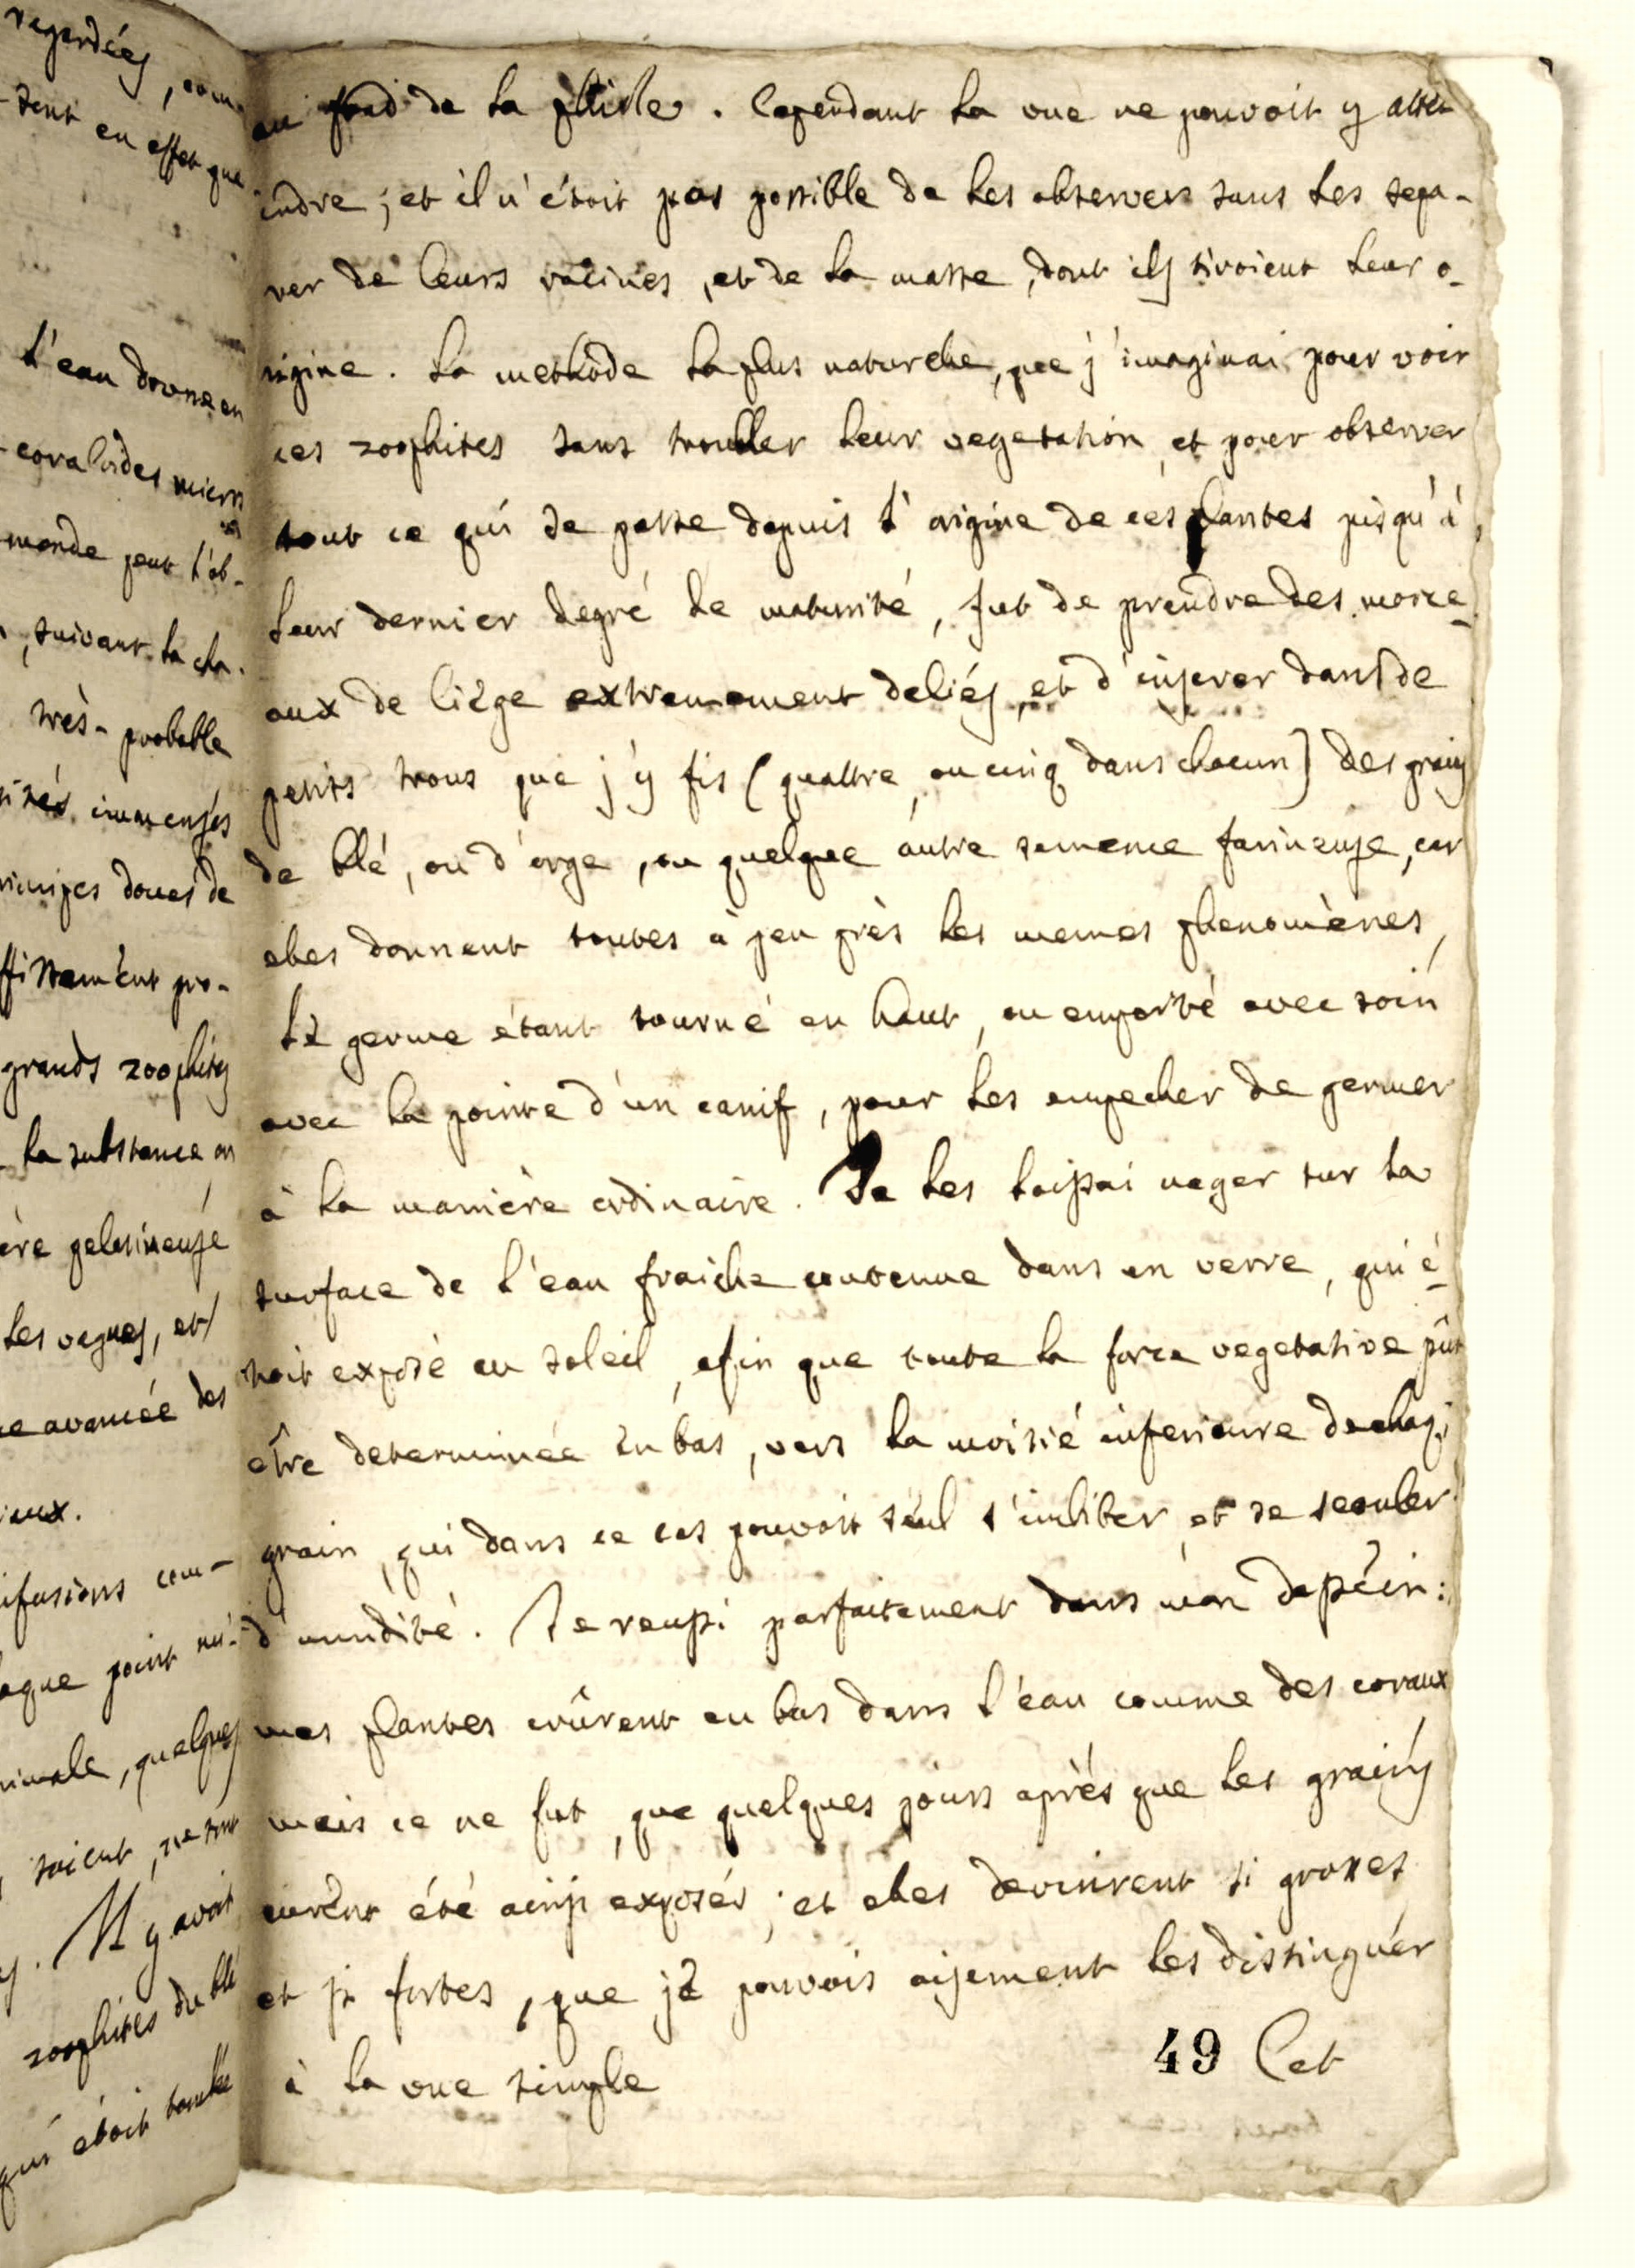 regardées, com-
-sent en effet que
L'eau donne en
-coraloides micros
mande peut l'ob-
, suivant la cha-
très-probable
immenses
doues de
pro-
grands zoophites
la substance
gelatineuse
les vagues, et
avancée des
ieux.
ifusions com-
aque point
nimale, quelques
soient, ne sont
Il y avoit
zoophites du blé
qui étoit tombée
au fond de la phiole. Cependant la vue ne pouvoit y attei
indre; et il n'étoit pas possible de les observer sans les sepa-
rer de leurs racines, et de la masse, dont ils tiroient leur o-
rigine. La methode la plus naturelle, que j'imaginai pour voir
ces zoophites sans troubler leur vegetation, et pour observer
tout ce qui se passe depuis l'origine de ces plantes jusqu'à
leur dernier degré de maturité, fut de prendre des morce-
aux de liège extremement deliés, et d'inserer dans de
petits trous que j'y fis (quattre, ou cinq dans chacun) des grains
de blé, ou d'orge, ou quelque autre semence farineuse, car
elles donnent toutes à peu près les memes phenomènes,
le germe étant tourné en haut, ou emporté avec soin
avec la pointe d'un canif, pour les empecher de germer
à la manière ordinaire. Je les laissai nager sur la
surface de l'eau fraiche contenue dans un verre, qui é-
toit exposé au soleil, afin que toute la force vegetative pût
être determinée en bas, vers la moitié inferieure de chaq;
grain, qui dans ce cas pouvoit seul s'imbiber, et se
d'umidité. Je reussi parfaitement dans mon dessein:
mes plantes crûrent en bas dans l'eau comme des coraux
mais ce ne fut, que quelques jours après que les grains
eurent été ainsi exposés; et elles devinrent si grosses
et si fortes, que je pouvois aisement les distinguer
à la vue simple
49 Cet